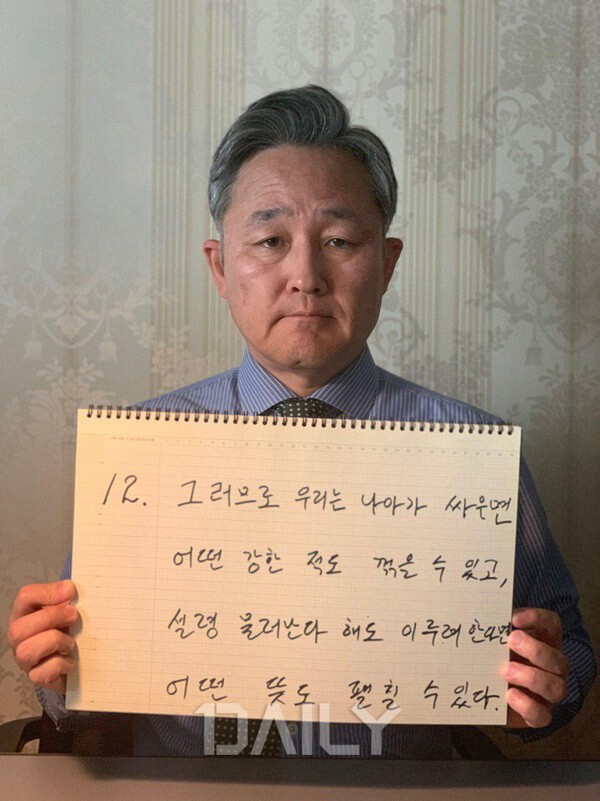 12. 그러므로 우리는 나아가 싸우면
어떤 강한 적도 꺾을 수 있고,
설령 물러난다 해도 이루려 한다면
어떤 뜻도 펼칠 수 있다.
1DAILY